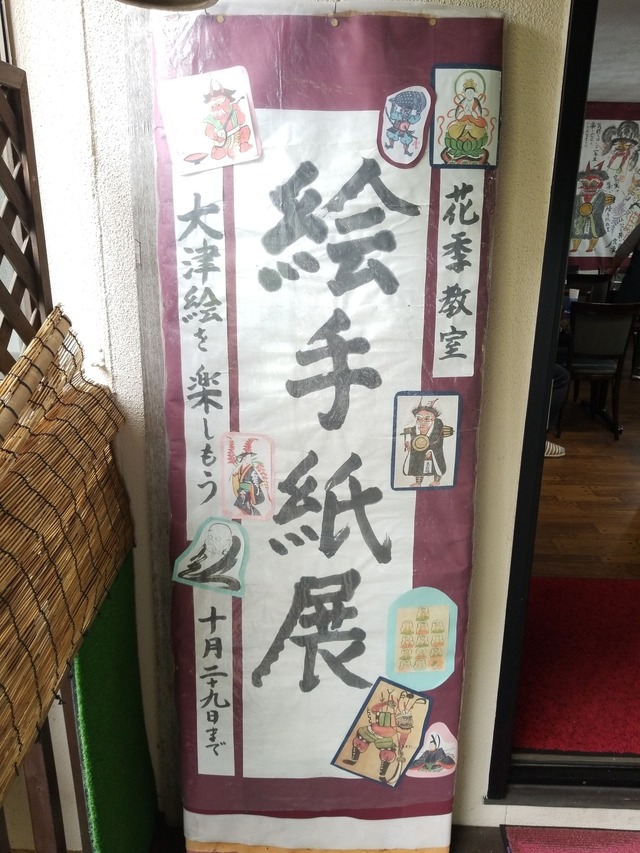 花季教室
絵手紙展
大津絵を楽しもう
十月二十九日まで